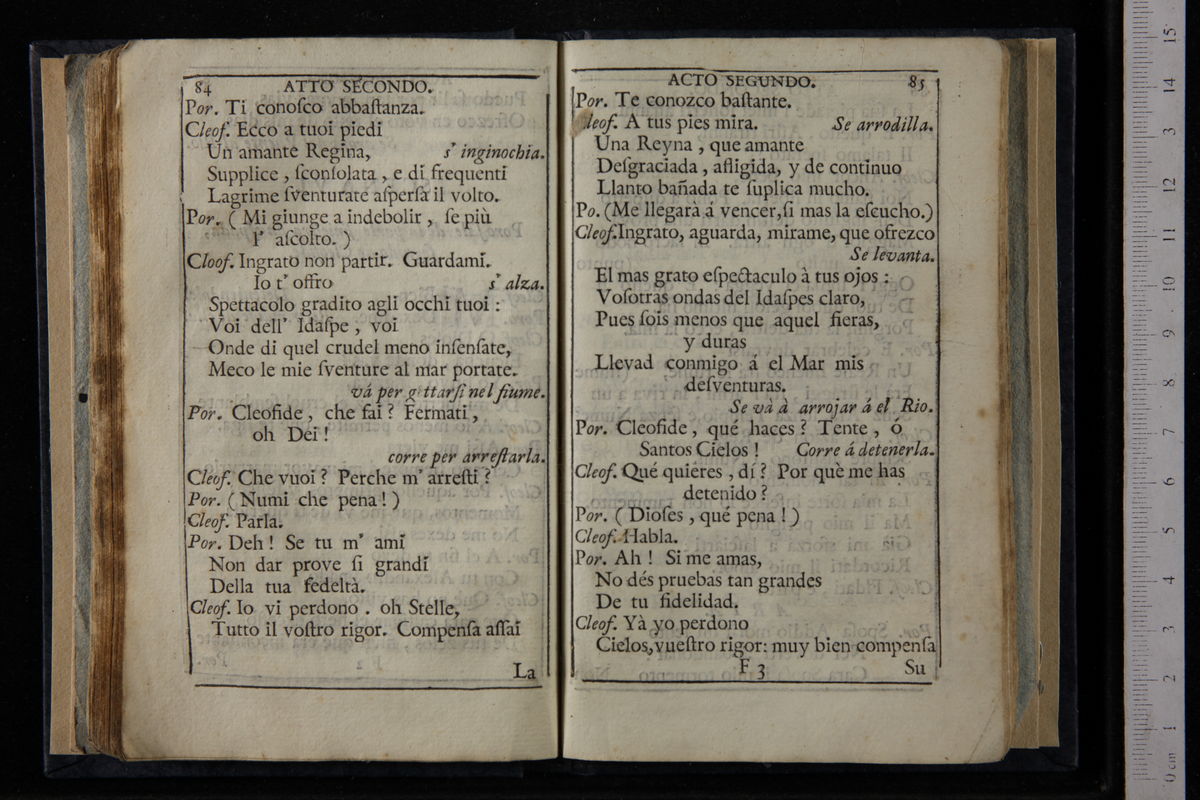 84 ATTO SECONDO.
Por. Ti conoſco abbaſtanza.
Cleof. Ecco a tuoi piedi
Un amante Regina, s' inginochia.
Supplice , ſconſolata , e di frequenti
Lagrime ſventurate aſperſa il volto.
Por. ( Mi giunge a indebolir , ſe più
l' aſcolto. )
Cloof. Ingrato non partir. Guardami.
Io t' offro s' alza.
Spettacolo gradito agli occhi tuoi :
Voi dell' Idaſpe , voi
Onde di quel crudel meno inſenſate,
Meco le mie ſventure al mar portate.
vá per gittarſi nel fiume.
Por. Cleofide , che fai ? Fermati ,
oh Dei !
corre per arreſtarla.
Cleof. Che vuoi ? Perche m' arreſti ?
Por. ( Numi che pena ! )
Cleof. Parla.
Por. Deh ! Se tu m' ami
Non dar prove ſi grandi
Della tua fedeltà.
Cleof. Io vi perdono . oh Stelle,
Tutto il voſtro rigor. Compenſa aſſai
La
ACTO SEGUNDO. 85
Por. Te conozco baſtante.
leof. A tus pies mira. Se arrodilla.
Una Reyna , que amante
Deſgraciada , afligida, y de continuo
Llanto bañada te ſuplica mucho.
Po. (Me llegarà á vencer,ſi mas la eſcucho.)
Cleof.Ingrato, aguarda, mirame, que ofrezco
Se levanta.
El mas grato eſpectaculo à tus ojos :
Voſotras ondas del Idaſpes claro,
Pues ſois menos que aquel fieras,
y duras
Llevad conmigo á el Mar mis
deſventuras.
Se và à arrojar á el Rio.
Por. Cleofide , qué haces ? Tente , ó
Santos Cielos ! Corre á detenerla.
Cleof. Qué quieres , dí ? Por què me has
detenido ?
Por. ( Dioſes , qué pena ! )
Cleof. Habla.
Por. Ah ! Si me amas,
No dés pruebas tan grandes
De tu fidelidad.
Cleof. Yà yo perdono
Cielos,vueſtro rigor: muy bien compenſa
F 3 Su
15
14
13
12
11
10
9
8
7
6
5
4
3
2
1
0 cm